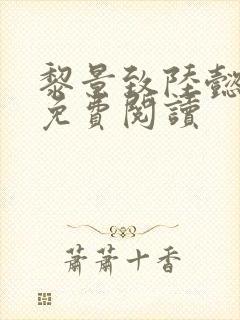 黎景致陸懿
免費閱讀
蕭蕭十香